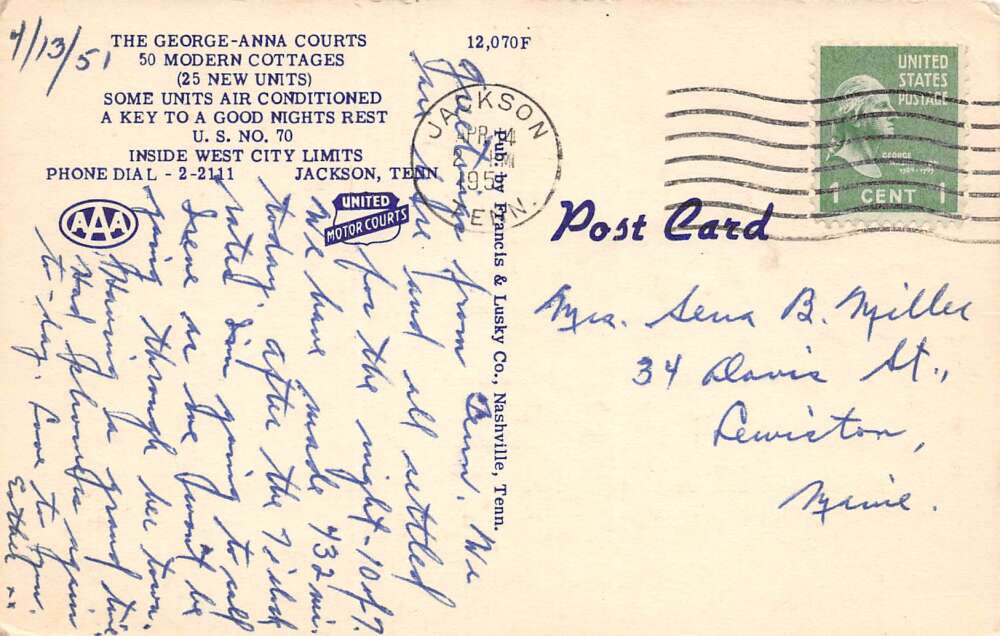 4/13/51
THE GEORGE-ANNA COURTS
50 MODERN COTTAGES
(25 NEW UNITS)
SOME UNITS AIR CONDITIONED
A KEY TO A GOOD NIGHTS REST
U. S. NO. 70
INSIDE WEST CITY LIMITS
PHONE DIAL - 2-2111 JACKSON, TENN
AAA
UNITED
MOTOR COURTS
12,070F
Greetings from Tenn. We
are here and all settled
for the night - 10 of 7.
We have made 432 mi.
today, after the 7 o'clock
going to call
Irene as we won't be
going through her town.
Having a grand time
Had again
to-day. Love to you.
Esther xx
Pub. by Francis & Lusky Co., Nashville, Tenn.
JACKSON
APR 14
2 PM
195
TENN.
UNITED
STATES
POSTAGE
GEORGE
1 CENT 1
Post Card
Mrs. Lena B. Miller
34 Davis St.,
Lewiston,
Maine.